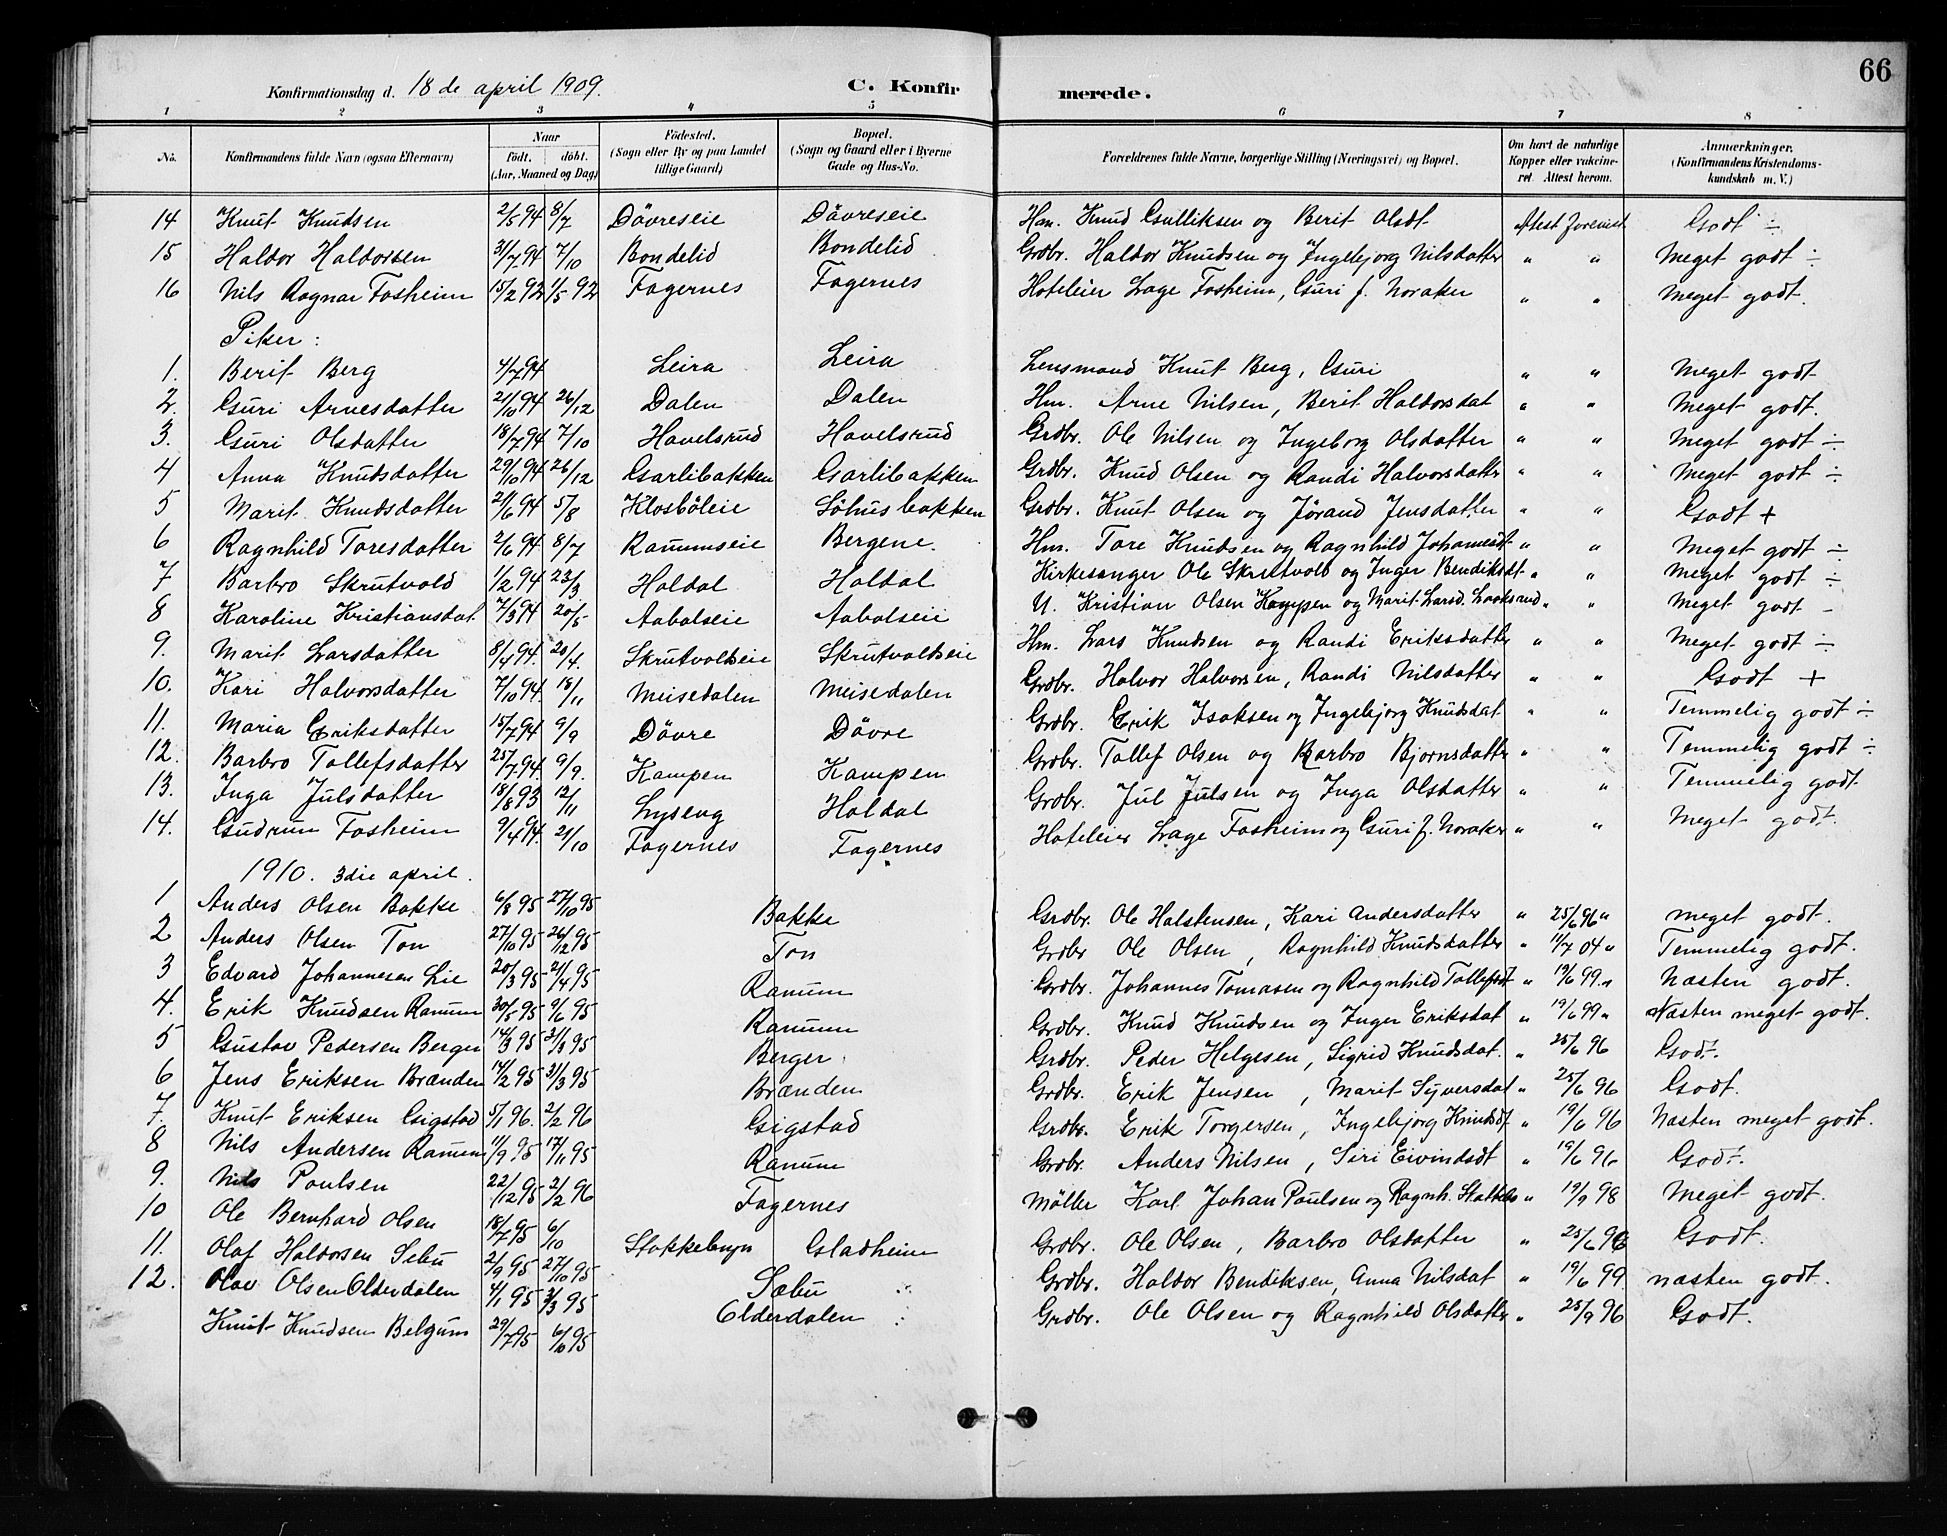 66
Konfirmationsdag d. 18 de april 1909. C. Konfirmerede.
1 2 3 4 5 6 7 8
No. Konfirmandens fulde Navn (ogsaa Efternavn) Naar født, døbt. (Aar, Maaned og Dag) Fødested. (Sogn eller By og paa Landet tillige Gaard) Bopæl. (Sogn og Gaard eller i Byerne Gade og Hus-No. Forældrenes fulde Navne, borgerlige Stilling (Næringsvei) og Bopæl. Om havt de naturlige Kopper eller vakcineret. Attest herom. Anmærkninger. (Konfirmandens Kristendomskundskab m. V.)
14 Knut Knudsen 2/5 94 8/7 Døvreseie Døvreseie Hm. Knud Gulliksen og Berit Olsdt Attest forevist Godt ÷
15 Haldor Haldorsen 31/7 94 7/10 Bondelid Bondelid Grdbr. Haldor Knudsen og Ingebjorg Nilsdatter " " Meget godt ÷
16 Nils Ragnar Fosheim 15/2 92 1/5 92 Fagernes Fagernes Hoteleier Lage Fosheim, Guri f. Noraker " " Meget godt.
Piker:
1. Berit Berg 4/7 94 Leira Leira Lensmand Knut Berg, Guri " " Meget godt
2. Guri Arnesdatter 21/10 94 26/12 Dalen Dalen Hm. Arne Nilsen, Berit Haldorsdat " " Meget godt.
3. Guri Olsdatter 18/7 94 7/10 Havelsrud Havelsrud Grdbr. Ole Nilsen og Ingeborg Olsdatter " " Meget godt ÷
4 Anna Knudsdatter 29/10 94 26/12 Garlibakken Garlibakken Grdbr. Knud Olsen og Randi Halvorsdatter " " Meget godt ÷
5 Marit Knudsdatter 21/6 94 5/8 Klosbøleie Søhusbakken Grdbr. Knut Olsen og Jørand Jensdatter " " Godt +
6 Ragnhild Toresdatter 2/6 94 8/7 Ranumseie Bergene. Hm. Tore Knudsen og Ragnhild Johannesdt " " Meget godt ÷
7 Barbro Skrutvold 1/2 94 23/3 Haldal Haldal Kirkesanger Ole Skrutvold og Inger Bendiksdt " " Meget godt ÷
8 Karoline Kristiansdat. 7/3 94 20/5 Aabolseie Aabolseie U. Kristian Olsen Kampen og Marit Larsd. " " Meget godt -
9. Marit Larsdatter 8/4 94. 20/4. Skrutvoldseie Skrutvoldseie Hm. Lars Knudsen og Randi Eriksdatter " " Meget godt ÷
10. Kari Halvorsdatter 7/10 94. 18/11 Meisedalen Meisedalen Grdbr. Halvor Halvorsen, Randi Nilsdatter " " Godt +
11. Maria Eriksdatter 15/7 94 9/9 Døvre Døvre Grdbr. Erik Isaksen og Ingebjorg Knudsdat " " Temmelig godt ÷
12. Barbro Tollefsdatter 25/7 94. 9/9. Kampen Kampen Grdbr. Tollef Olsen og Barbro Bjornsdatter " " Temmelig godt ÷
13. Inga Julsdatter 18/8 93 12/11 Lyseng Haldal Grdbr. Jul Julsen og Inga Olsdatter " " Temmelig godt
14. Gudrun Fosheim 9/4 94. 21/10 Fagernes Fagernes Hoteleier Lage Fosheim og Guri f. Noraker " " Meget godt.
1910. 3die april.
1 Anders Olsen Bakke 6/8 95 27/10 95 Bakke Grdbr. Ole Halstensen, Kari Andersdatter " 25/6 96 " meget godt.
2 Anders Olsen Ton 27/10 95 26/12 95 Ton Grdbr. Ole Olsen, Ragnhild Knudsdatter " 11/7 04 " Temmelig godt.
3 Edvard Johannesen Lie 20/3 95 21/4 95 Ranum Grdbr. Johannes Tomasen og Ragnhild Tollefsdt " 19/6 99 " Næsten godt.
4. Erik Knudsen Ranum 30/5 95 9/6 95 Ranum Grdbr. Knud Knudsen og Inger Eriksdat " 19/6 99 " Næsten meget godt.
5 Gustav Pedersen Berger 14/3 95 31/3 95 Berger Grdbr. Peder Helgesen, Sigrid Knudsdat. " 25/6 96 Godt.
6 Jens Eriksen Brænden 14/2 95 31/3 95 Brænden Grdbr. Erik Jensen, Marit Syversdat " 25/6 96 Godt.
7. Knut Eriksen Gigstad 5/1 96. 2/2 96 Gigstad Grdbr. Erik Torgersen, Ingebjorg Knudsdt " 19/6 96 Næsten meget godt.
8 Nils Andersen Ranum 11/9 95 17/11 95 Ranum Grdbr. Anders Nilsen, Siri Eivindsdt " 19/6 96 Godt.
9. Nils Poulsen 22/12 95 2/2 96 Fagernes Møller Karl Johan Paulsen og Ragnh. " 19/9 98 Meget godt.
10 Ole Bernhard Olsen 18/7 95 6/10 Stokkebryn Gladheim Grdbr. Ole Olsen, Barbro Olsdatter " 25/6 96 Godt.
11. Olaf Haldorsen Sebu 2/9 95 27/10 95 Sæbu Grdbr. Haldor Bendiksen, Anna Nilsdat " 19/6 99 næsten godt.
12. Olav Olsen Olderdalen 4/1 95 3/3 95 Olderdalen Grdbr. Ole Olsen og Ragnhild Olsdatter " 25/9 96 Godt.
Knut Knudsen Belgum 29/7 95 6/10 95